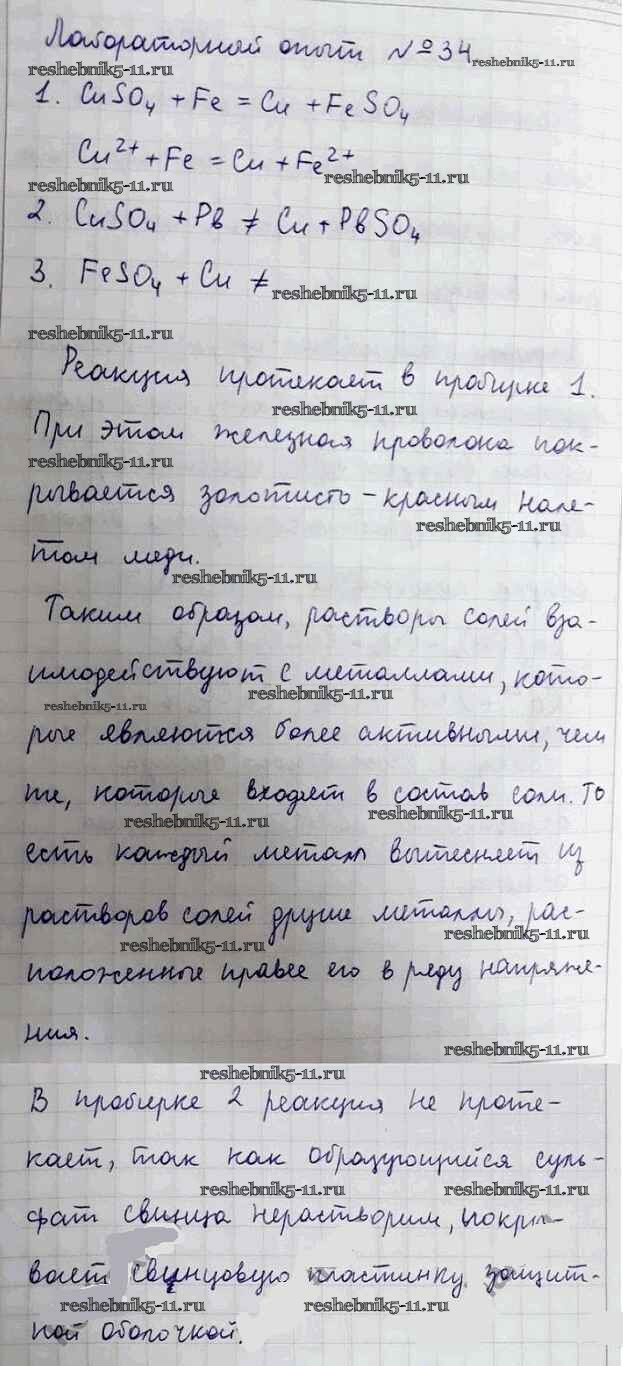 Лабораторный опыт №34
reshebnik5-11.ru reshebnik5-11.ru
1. CuSO₄ + Fe = Cu + FeSO₄
Cu²⁺ + Fe = Cu + Fe²⁺
reshebnik5-11.ru reshebnik5-11.ru
2. CuSO₄ + Pb ≠ Cu + PbSO₄
3. FeSO₄ + Cu ≠
reshebnik5-11.ru
reshebnik5-11.ru
Реакция протекает в пробирке 1.
reshebnik5-11.ru
При этом железная проволока пок-
reshebnik5-11.ru
рывается золотисто-красным нале-
reshebnik5-11.ru
том меди.
reshebnik5-11.ru
Таким образом, растворы солей вза-
имодействуют с металлами, кото-
reshebnik5-11.ru
reshebnik5-11.ru
рые являются более активными, чем
те, которые входят в состав соли. То
reshebnik5-11.ru reshebnik5-11.ru
есть каждый металл вытесняет из
растворов солей другие металлы, рас-
reshebnik5-11.ru reshebnik5-11.ru
положенные правее его в ряду напряже-
ния.
reshebnik5-11.ru
reshebnik5-11.ru
В пробирке 2 реакция не проте-
кает, так как образующийся суль-
reshebnik5-11.ru reshebnik5-11.ru
фат свинца нерастворим, покры-
вает свинцовую пластинку защит-
reshebnik5-11.ru reshebnik5-11.ru
ной оболочкой.